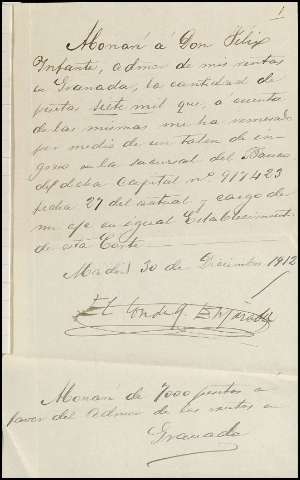 1
Abonaré á Don Félix
Infante, admor de mis rentas
en Granada, la cantidad de
pesetas siete mil que, á cuenta
de las mismas me ha remesado
por medio de un talon de in-
greso en la sucursal del Banco
de dicha Capital nº 917423
fecha 27 del actual y cargo de
en igual Establecimiento
de esta Corte
Madrid 30 de Diciembre 1912
El Conde de
Abonaré de 7000 pesetas á
favor del Admor de las rentas en
Granada